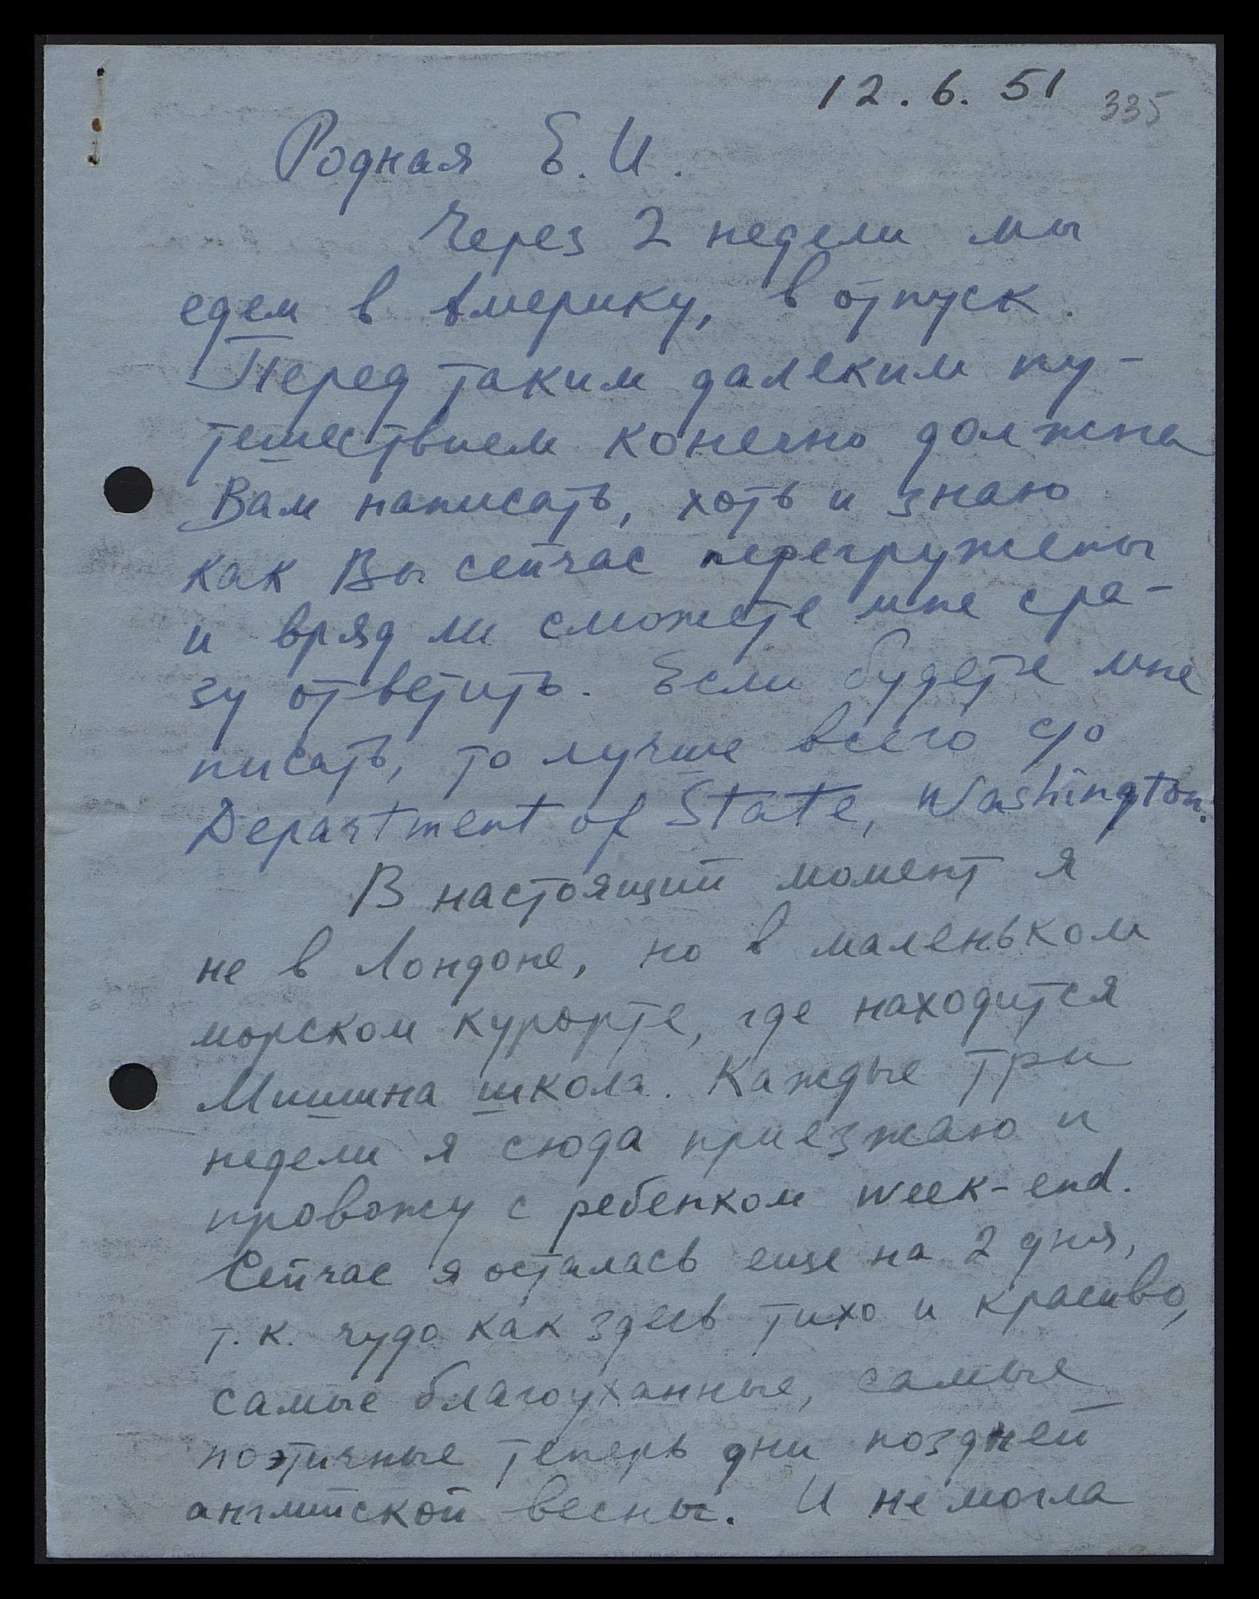 12.6.51
335
Родная Е. И.
Через 2 недели мы
едем в Америку, в отпуск.
Перед таким далеким пу-
тешествием конечно должна
Вам написать, хоть и знаю
как Вы сейчас перегружены
и вряд ли сможете мне сра-
зу ответить. Если будете мне
писать, то лучше всего c/o
Department of State, Washington.
В настоящий момент я
не в Лондоне, но в маленьком
морском курорте, где находится
Мишина школа. Каждые три
недели я сюда приезжаю и
провожу с ребенком week-end.
Сейчас я осталась еще на 2 дня,
т.к. чудо как здесь тихо и красиво,
самые благоуханные, самые
поэтичные теперь дни поздней
английской весны. И не могла